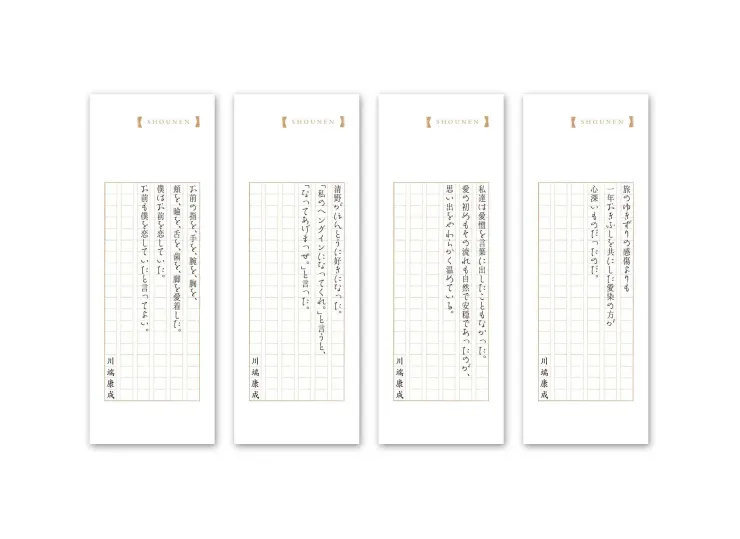 SHOUNEN
お前の指を、手を、腕を、胸を、
頰を、瞼を、舌を、歯を、脚を愛着した。
僕はお前を恋していた。
お前も僕を恋していたと言ってよい。
川端康成
SHOUNEN
清野がほんとうに好きになった。
「私のヘングインになってくれ。」と言うと、
「なってあげまっせ。」と言った。
川端康成
SHOUNEN
私達は愛憎を言葉に出したこともなかった。
愛の初めもその流れも自然で安穏であったのが、
思い出をやわらかく温めている。
川端康成
SHOUNEN
旅のゆきずりの感傷よりも
一年おきふしを共にした愛染の方が
心深いものだったのだ。
川端康成